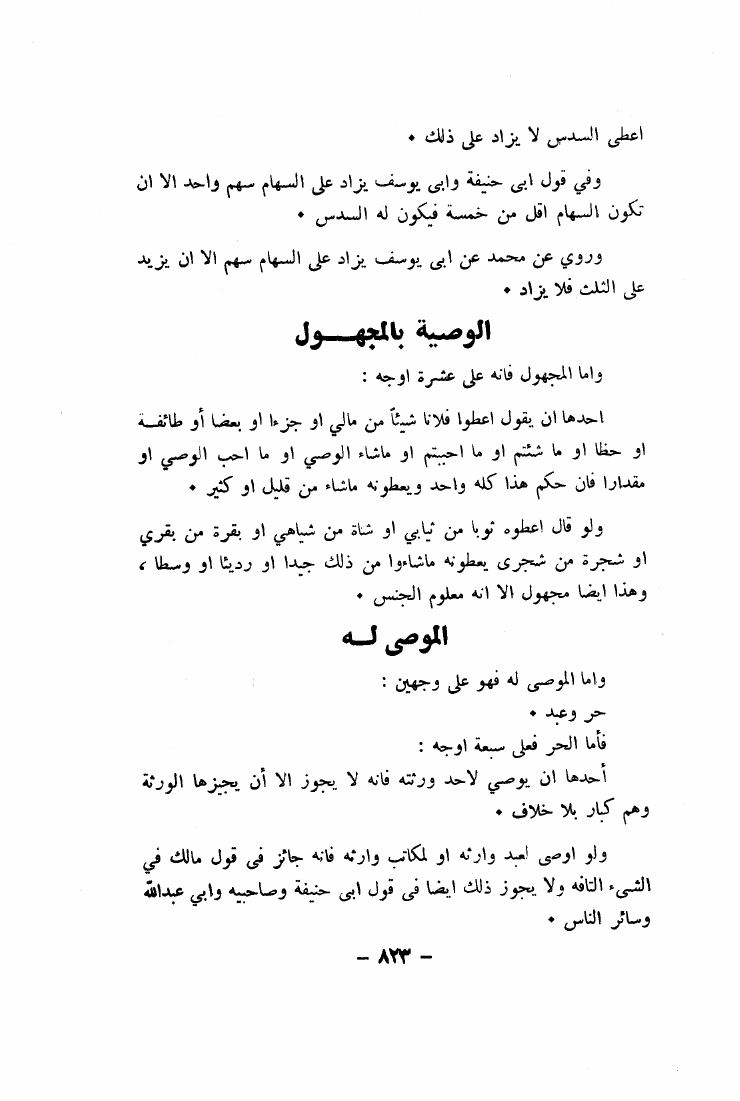 اعطى السدس لا يزاد على ذلك ٠
وفي قول ابى حنيفة وابى يوسف يزاد على السهام سهم واحد الا ان
تكون السهام اقل من خمسة فيكون له السدس ٠
وروي عن محمد عن ابى يوسف يزاد على السهام سهم الا ان يزيد
على الثلث فلا يزاد ٠
الوصية بالمجهـــول
واما المجهول فانه على عشرة اوجه :
احدها ان يقول اعطوا فلانا شيئاً من مالي او جزءا او بعضا أو طائفــة
او حظا او ما شئتم او ما احببتم او ماشاء الوصي او ما احب الوصي او
مقدارا فان حكم هذا كله واحد ويعطونه ماشاء من قليل او كثير ٠
ولو قال اعطوه ثوبا من ثيابي او شاة من شياهي او بقرة من بقري
او شجرة من شجرى يعطونه ماشاءوا من ذلك جيدا او رديئا او وسطا ،
وهذا ايضا مجهول الا انه معلوم الجنس ٠
الموصى لــه
واما الموصى له فهو على وجهين :
حر وعبد ٠
فأما الحر فعلى سبعة اوجه :
أحدها ان يوصي لاحد ورثته فانه لا يجوز الا أن يجيزها الورثة
وهم كبار بلا خلاف ٠
ولو اوصى لعبد وارثه او لمكاتب وارثه فانه جائز فى قول مالك في
الشىء التافه ولا يجوز ذلك ايضا فى قول ابى حنيفة وصاحبيه وابي عبدالله
وسائر الناس ٠
– ٨٢٣ –